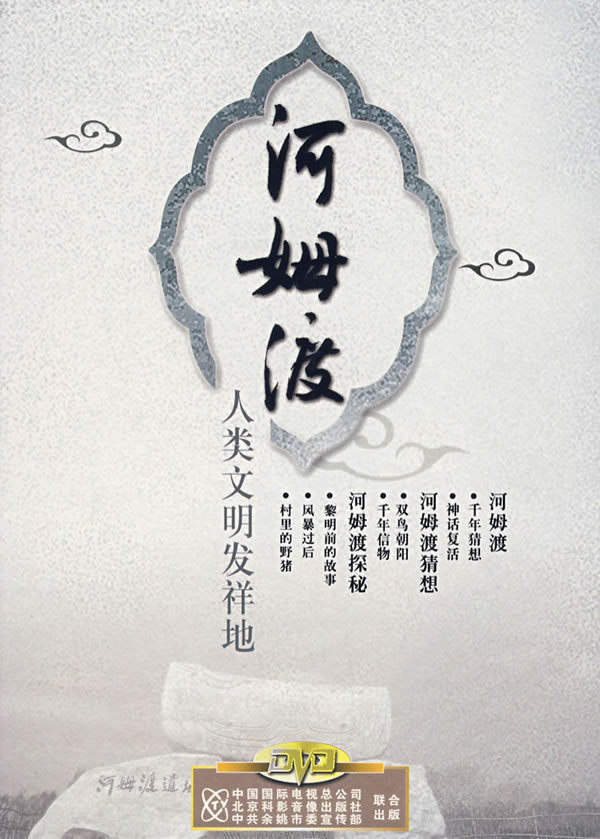 河姆渡
人类文明发祥地
河姆渡
•千年猜想
•神话复活
河姆渡猜想
•双鸟朝阳
•千年信物
河姆渡探秘
•黎明前的故事
•风暴过后
•村里的野猪
河姆渡遗
DVD
中国国际电视总公司
北京科影音像出版社
中共余姚市委宣传部
联合
出版